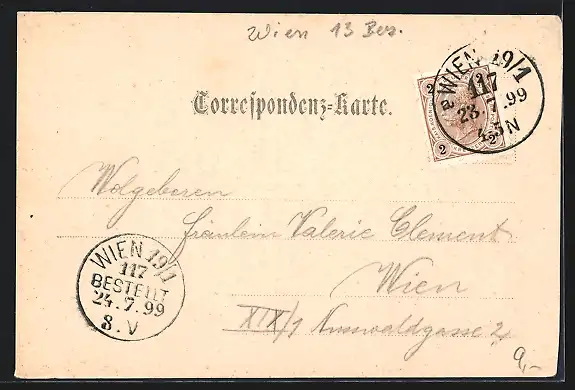 Wien 13 Bez.
Correspondenz-Karte.
WIEN 19/1
117
a
23.7.99
4.5N
2 2
2 2
Wolgeboren
Fräulein Valerie Clement
Wien
XIX/1 Kunwaldgasse 4
WIEN 19/1
117
BESTELLT
24.7.99
8.V
9,-